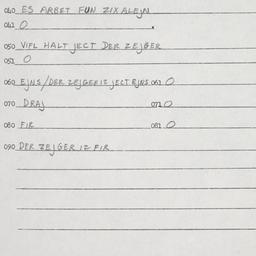 060 ES ARBET FUN ZIX ALEJN
061 O
050 VIFL HALT JECT DER ZEJGER
051 O
060 EJNS/DER ZEJGER IZ JECT EJNS. 061 O
070 DRAJ 071 O
080 FIR 081 O
090 DER ZEJGER IZ FIR